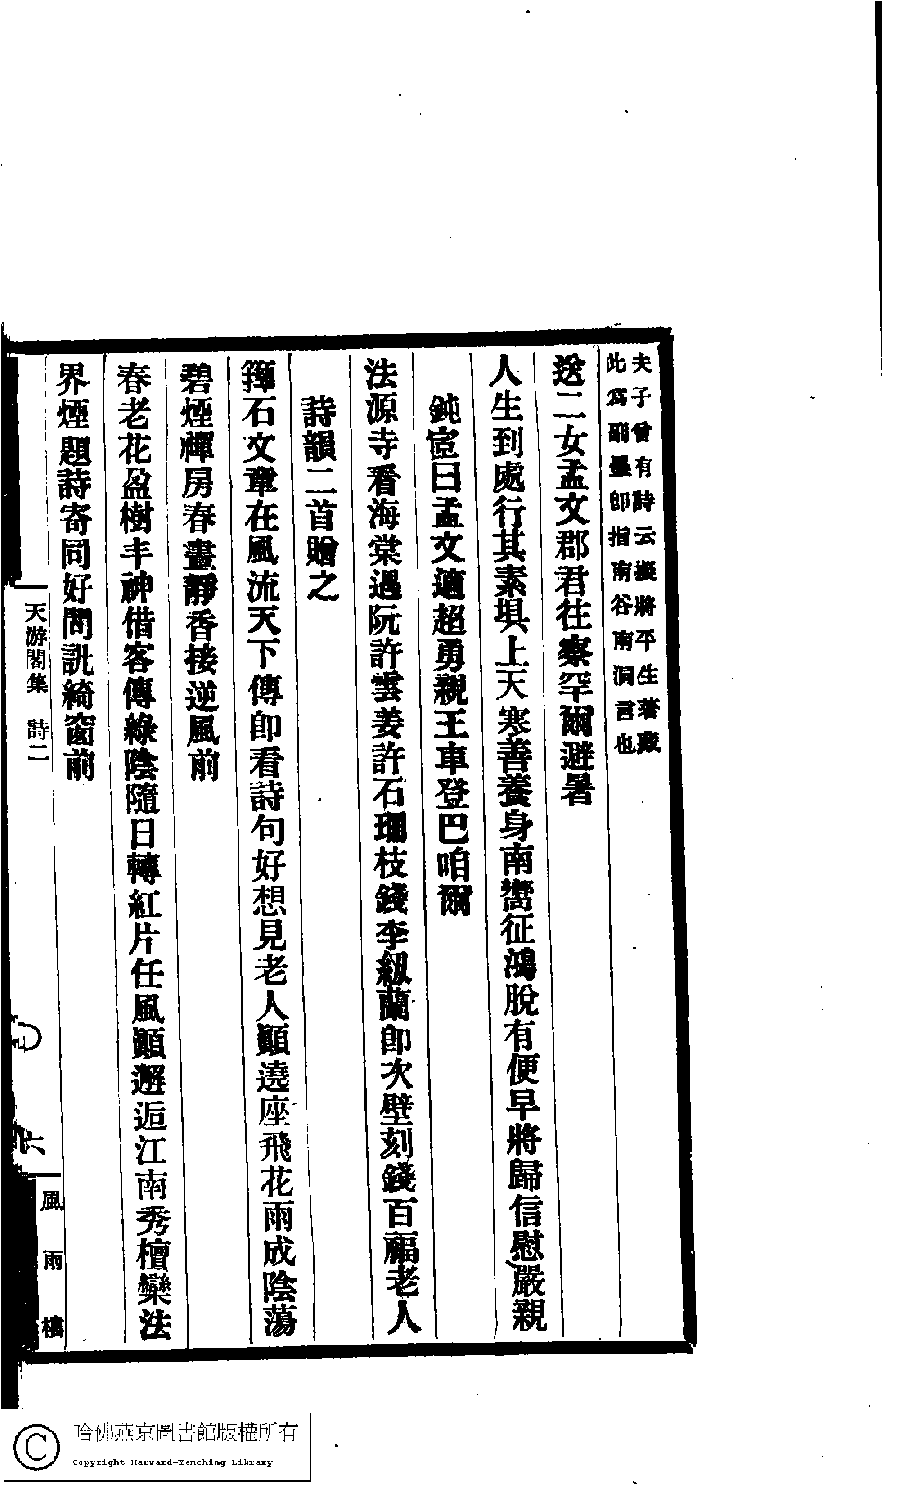 夫子曾有詩云擬將平生著藏
此爲副墨卽指南谷南洞言也
送二女孟文郡君往察罕爾避暑
人生到處行其素埧上天寒善養身南嚮征鴻脫有便早將歸信慰嚴親
鈍宧曰孟文適超勇親王車登巴咱爾
法源寺看海棠遇阮許雲姜許石珊枝錢李紉蘭卽次壁刻錢百福老人
詩韻二首贈之
籜石文章在風流天下傳卽看詩句好想見老人顚遶座飛花雨成陰蕩
碧煙禪房春晝靜香接逆風前
春老花盈樹丰神借客傳綠陰隨日轉紅片任風顚邂逅江南秀檀欒法
界煙題詩寄同好問訊綺窗前
天游閣集 詩二
六
風雨樓
哈佛燕京圖書館版權所有
Copyright Harvard-Yenching Library